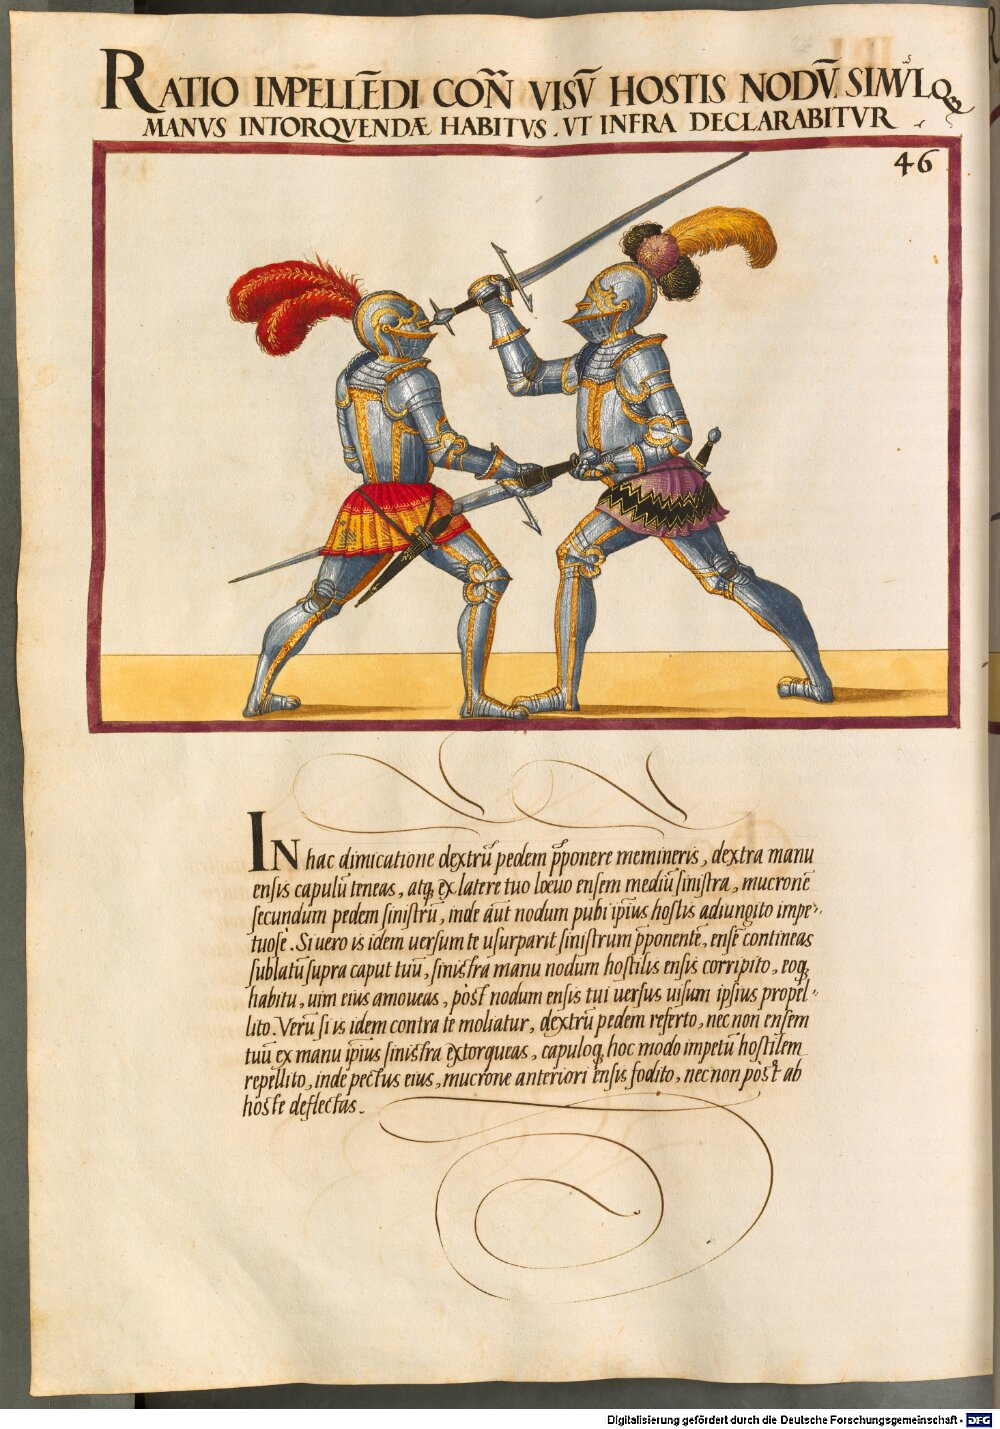 RATIO IMPELLĒDI COÑ VISV̄ HOSTIS NODV̄, SIMVLQꝫ
MANVS INTORQVENDÆ HABITVS, VT INFRA DECLARABITVR
46
IN hac dimicatione dextrū pedem p̄ponere memineris, dextra manu
ensis capulū teneas, atqꝫ ex latere tuo loeuo ensem mediū sinistra, mucronē
secundum pedem sinistrū, inde aūt nodum pubi ip̄ius hostis adiungito impe-
tuosè. Si uero is idem uersum te usurparit sinistrum p̄ponentē, ensē contineas
sublatū supra caput tuū, sinistra manu nodum hostilis ensis corripito, eoqꝫ
habitu, uim eius amoueas, pòst nodum ensis tui uersus uisum ipsius propel-
lito. Verū si is idem contra te moliatur, dextrū pedem referto, nec non ensem
tuū ex manu ip̄ius sinistra extorqueas, capuloqꝫ hoc modo impetū hostilem
repellito, inde pectus eius, mucrone anteriori ensis fodito, nec non pòst ab
hoste deflectas.
Digitalisierung gefördert durch die Deutsche Forschungsgemeinschaft - DFG